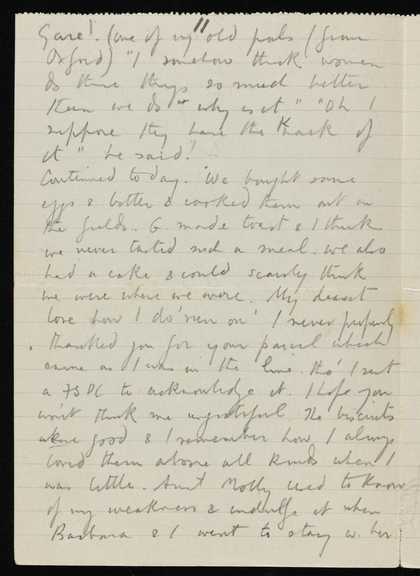 11
Gare'. (one of my old pals / from
Oxford) "I somehow think women
do these things so much better
than we do" "why is it" "Oh I
suppose they have the knack of
it" he said!
Continued today. We bought some
eggs & butter & cooked them out in
the fields. G. made toast & I think
we never tasted such a meal. We also
had a cake & could scarcely think
we were where we were. My dearest
love how I do 'run on' I never properly
thanked you for your parcel which
came as I was in the line. tho' I sent
a FSPC to acknowledge it. I hope you
won't think me ungrateful. The biscuits
were good & I remember how I always
loved them above all kinds when I
was little. Aunt Molly used to know
of my weakness & indulge it when
Barbara & I went to stay w. her.